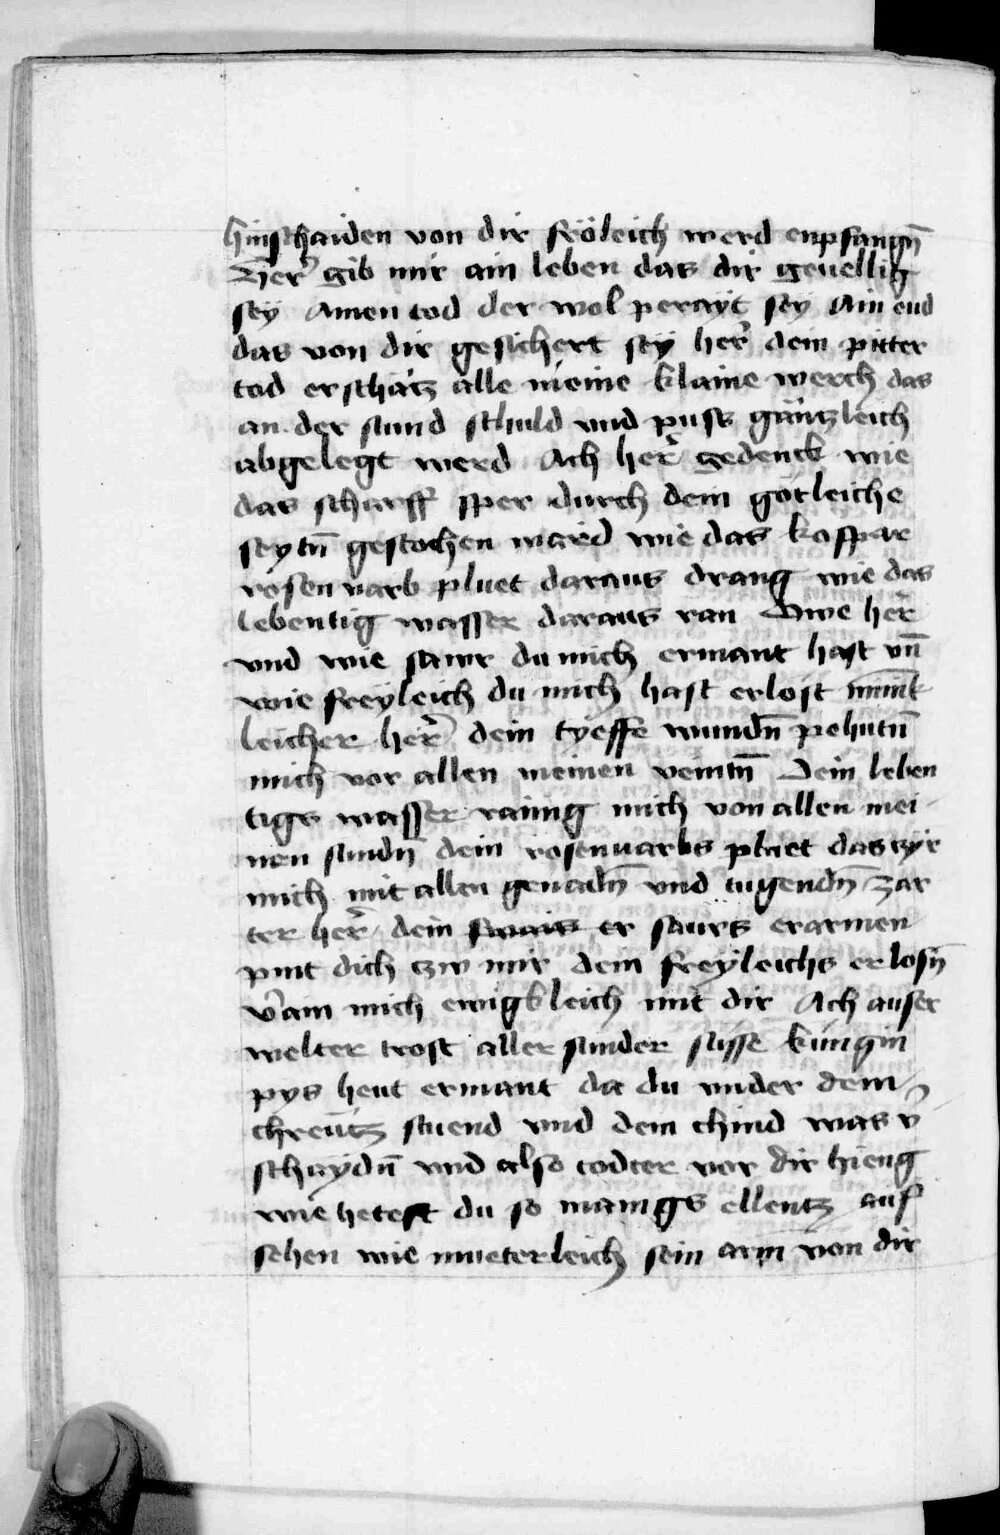 hinschaiden von dir fröleich werd enpfangn̄
Her̄ gib mir ain leben das dir geuellig
sey Amen tod der wol perayt sey Ain end
das von dir gesichert sey her̄ dein pitter
tod erschatz alle meine klaine werch das
an der stund schuld vnd puss gäntzleich
abgelegt werd Ach her̄ gedenck wie
das scharff sper durch dein götleiche
seytn̄ gestochen ward wie das kospar
rosen varb pluet daraus drang wie das
lebentig wasser daraus ran Awe her̄
vnd wie sawr du mich ermant hast vn̄
wie freyleich du mich hast erlost mint
leicher her̄ dein tyeffe wundn̄ pehutn̄
mich vor allen meinen veintn̄ Dein leben
tigs wasser rainig mich von allen mei
nen sundn̄ dein rosenuarbs pluet das zyr
mich mit allen genadn̄ vnd tugendn̄ zar
ter her̄ dein er saurs erarmen
pint dich zw mir dein freyleichs erlosn̄
v̄ain mich ewigkleich mit dir Ach auser
welter trost aller sunder süsse küngin
pys heut ermant da du vnder dem
chreutz stuend vnd dein chind was v̄
schaydn̄ vnd also todter vor dir hieng
wie hetest du so manigs ellentz auf
sehen wie mueterleich sein arm von dir